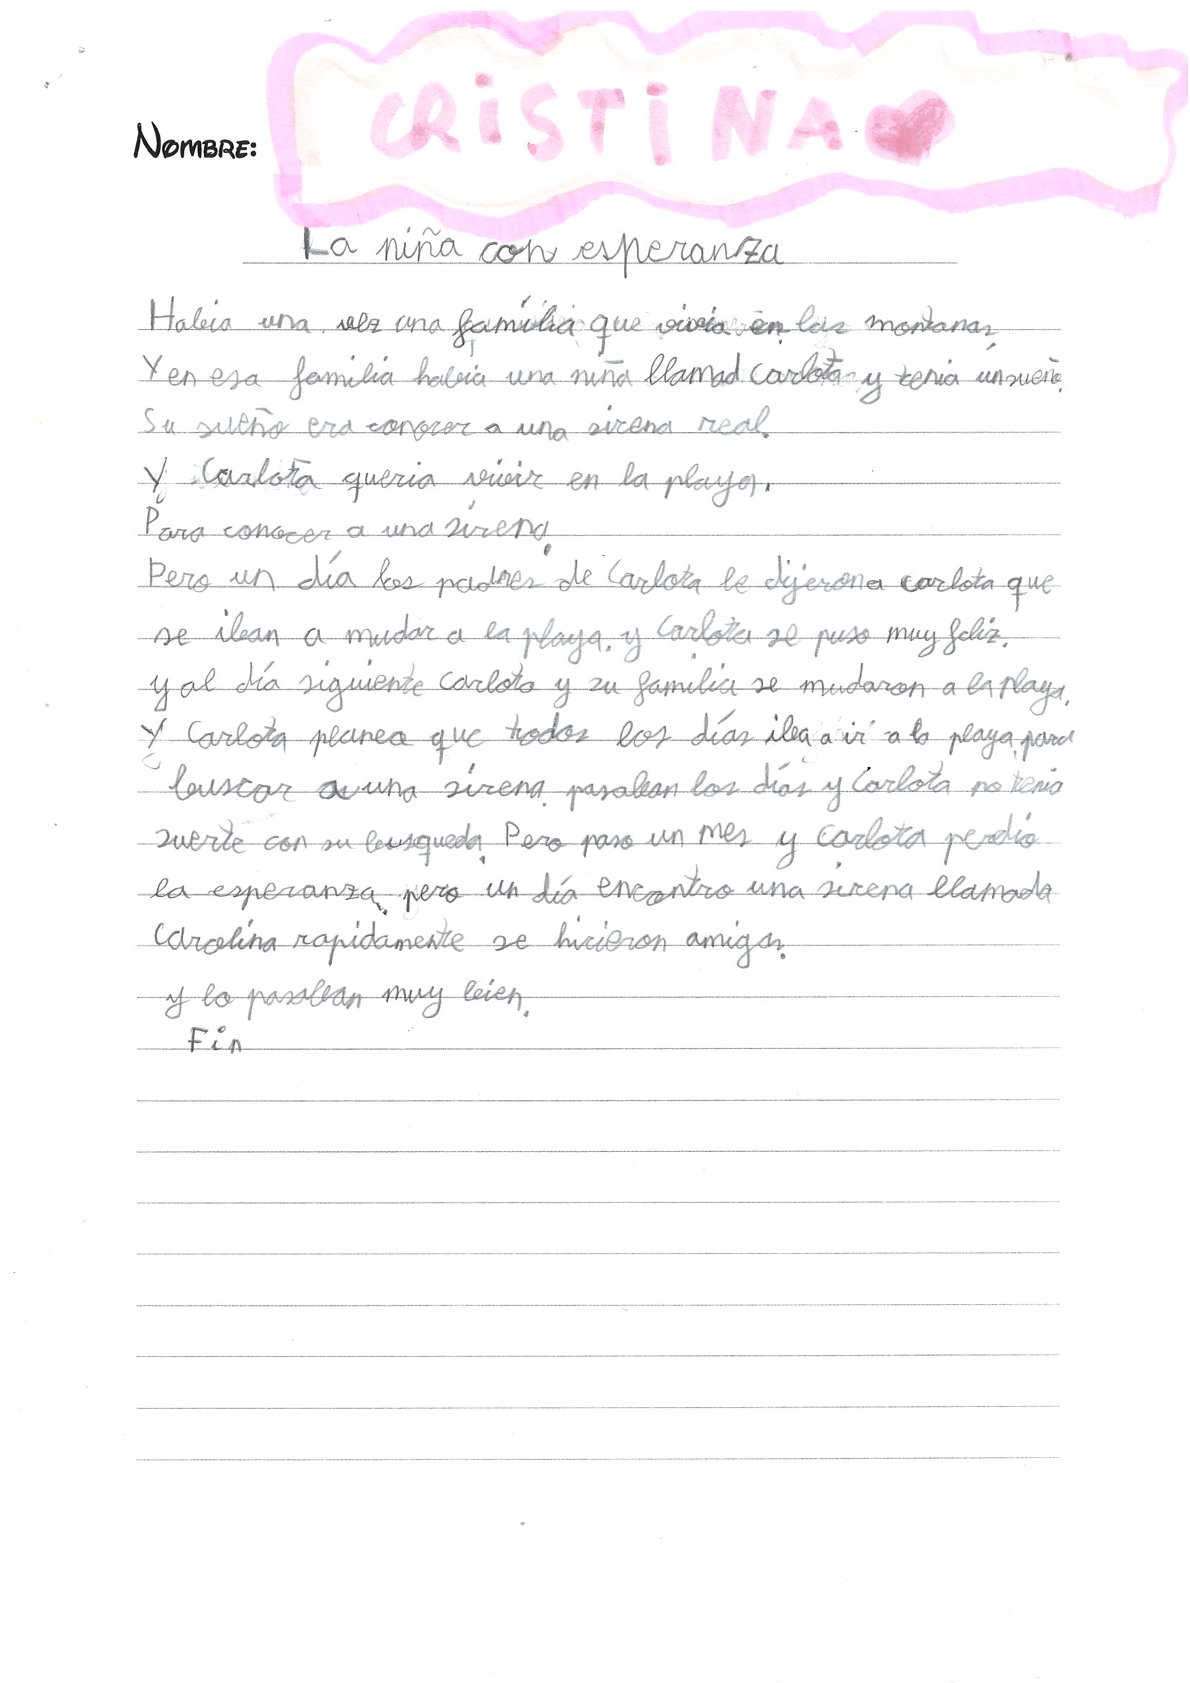 NOMBRE: CRISTINA
La niña con esperanza
Habia una vez una família que vivia en las montanas,
Y en esa familia habia una niña llamad Carlota y tenia un sueño.
Su sueño era conocer a una sirena real.
Y Carlota queria vivir en la playa.
Para conocer a una sirena.
Pero un día los padres de Carlota le dijeron a carlota que
se iban a mudar a la playa, y Carlota se puso muy feliz.
y al día siguiente Carlota y su familia se mudaron a la playa.
Y Carlota planeo que todos los días iba a ir a la playa, para
buscar a una sirena, pasaban los días y Carlota no tenia
suerte con su busqueda, Pero paso un mes y Carlota perdio
la esperanza, pero un día encontro una sirena llamada
Carolina rapidamente se hicieron amigas.
y lo pasaban muy bien.
Fin